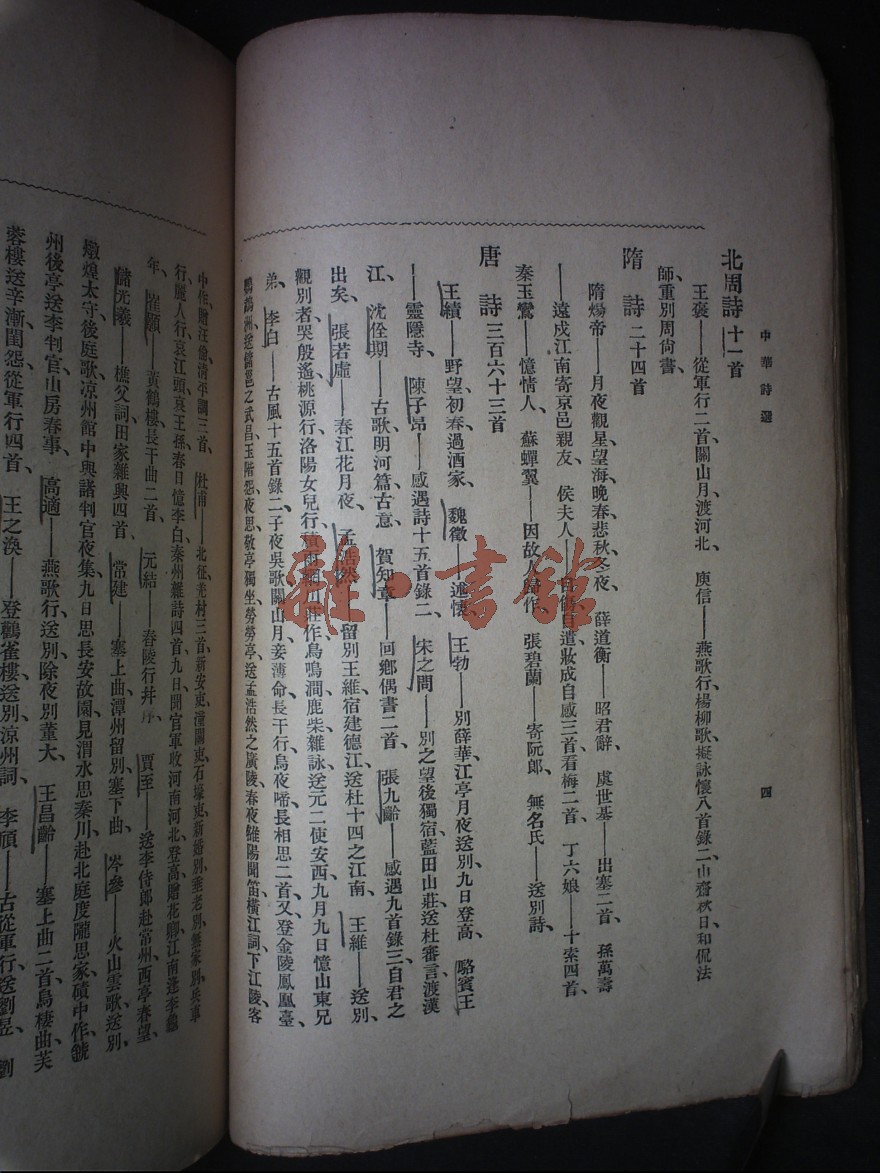 中華詩選
四
北周詩 十一首
王褒——從軍行二首、關山月、渡河北、 庾信——燕歌行、楊柳歌、擬詠懷八首錄二、山齋、秋日、和侃法
師、重別周尚書、
隋詩 二十四首
隋煬帝——月夜觀星、望海、晚春、悲秋、冬夜、 薛道衡——昭君辭、 虞世基——出塞二首、 孫萬壽
——遠戍江南寄京邑親友、 侯夫人——自傷、自遣、妝成、自感三首、看梅二首、 丁六娘——十索四首、
秦玉鸞——憶情人、 蘇蟬翼——因故人歸作、 張碧蘭——寄阮郎、 無名氏——送別詩、
唐詩 三百六十三首
王績——野望、初春、過酒家、 魏徵——述懷、 王勃——別薛華、江亭月夜送別、九日登高、 駱賓王
——靈隱寺、 陳子昂——感遇詩十五首錄二、 宋之問——別之望後獨宿藍田山莊、送杜審言、渡漢
江、 沈佺期——古歌、明河篇、古意、 賀知章——回鄉偶書二首、 張九齡——感遇九首錄三、自君之
出矣、 張若虛——春江花月夜、 孟浩然——留別王維、宿建德江、送杜十四之江南、 王維——送別、
觀別者、哭殷遙、桃源行、洛陽女兒行、積雨輞川莊作、鳥鳴澗、鹿柴、雜詠、送元二使安西、九月九日憶山東兄
弟、 李白——古風十五首錄二、子夜吳歌、關山月、妾薄命、長干行、烏夜啼、長相思二首、又、登金陵鳳凰臺、
鸚鵡洲、送儲邕之武昌、玉階怨、夜思、敬亭獨坐、勞勞亭、送孟浩然之廣陵、春夜雒陽聞笛、橫江詞、下江陵、客
中作、贈汪倫、清平調三首、 杜甫——北征、羌村三首、新安吏、潼關吏、石壕吏、新婚別、垂老別、無家別、兵車
行、麗人行、哀江頭、哀王孫、春日憶李白、秦州雜詩四首、九日、聞官軍收河南河北、登高、贈花卿、江南逢李龜
年、 崔顥——黃鶴樓、長干曲二首、 元結——舂陵行并序、 賈至——送李侍郎赴常州、西亭春望、
儲光羲——樵父詞、田家雜興四首、 常建——塞上曲、潭州留別、塞下曲、 岑參——火山雲歌送別、
燉煌太守後庭歌、涼州館中與諸判官夜集、九日思長安故園、見渭水思秦川、赴北庭度隴思家、磧中作、虢
州後亭送李判官、山房春事、 高適——燕歌行、送別、除夜、別董大、 王昌齡——塞上曲二首、烏棲曲、芙
蓉樓送辛漸、閨怨、從軍行四首、 王之渙——登鸛雀樓、送別、涼州詞、 李頎——古從軍行、送劉昱、 劉
雜·書館